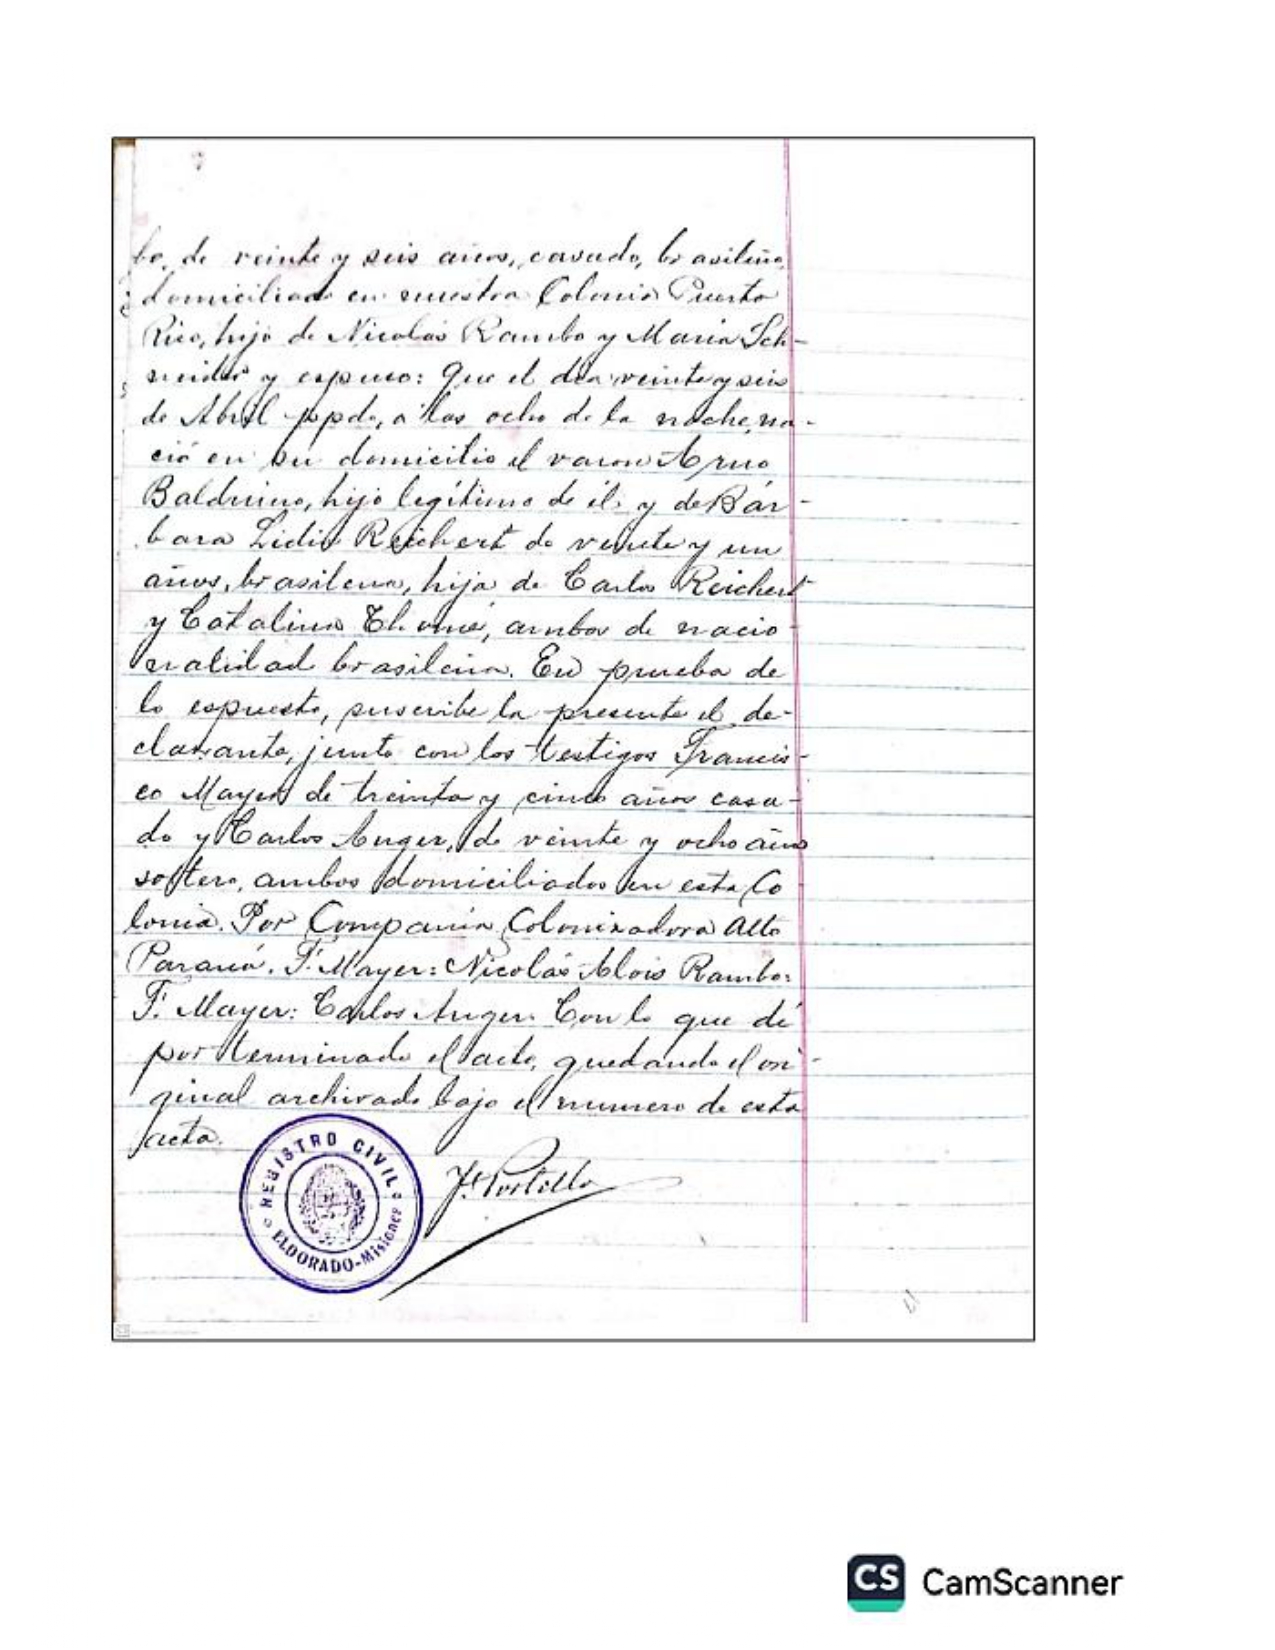 bo, de veinte y seis años, casado, brasileño,
domiciliado en nuestra Colonia Puerto
Rico, hijo de Nicolás Rambo y María Sch-
neider y espuso: Que el dia veinte y seis
de Abril ppdo, a las ocho de la noche, na-
ció en su domicilio el varon Arno
Balduino, hijo legítimo de él y de Bár-
bara Lidia Reichert de veinte y un
años, brasilena, hija de Carlos Reichert
y Catalina Thomé, ambos de nacio
nalidad brasileña. En prueba de
lo espuesto, suscribe la presente el de-
clarante, junto con los testigos Francis-
co Mayer de treinta y cinco años casa-
do y Carlos Auger, de veinte y ocho años
soltero, ambos domiciliados en esta Co
lonia. Por Compania Colonizadora Alto
Paraná. F. Mayer: Nicolás Alois Rambo:
F. Mayer: Carlos Auger. Con lo que dí
por terminado el acto, quedando el ori-
ginal archivado bajo el numero de esta
acta.
REGISTRO CIVIL
ELDORADO-Misiones
Portillo
CS CamScanner